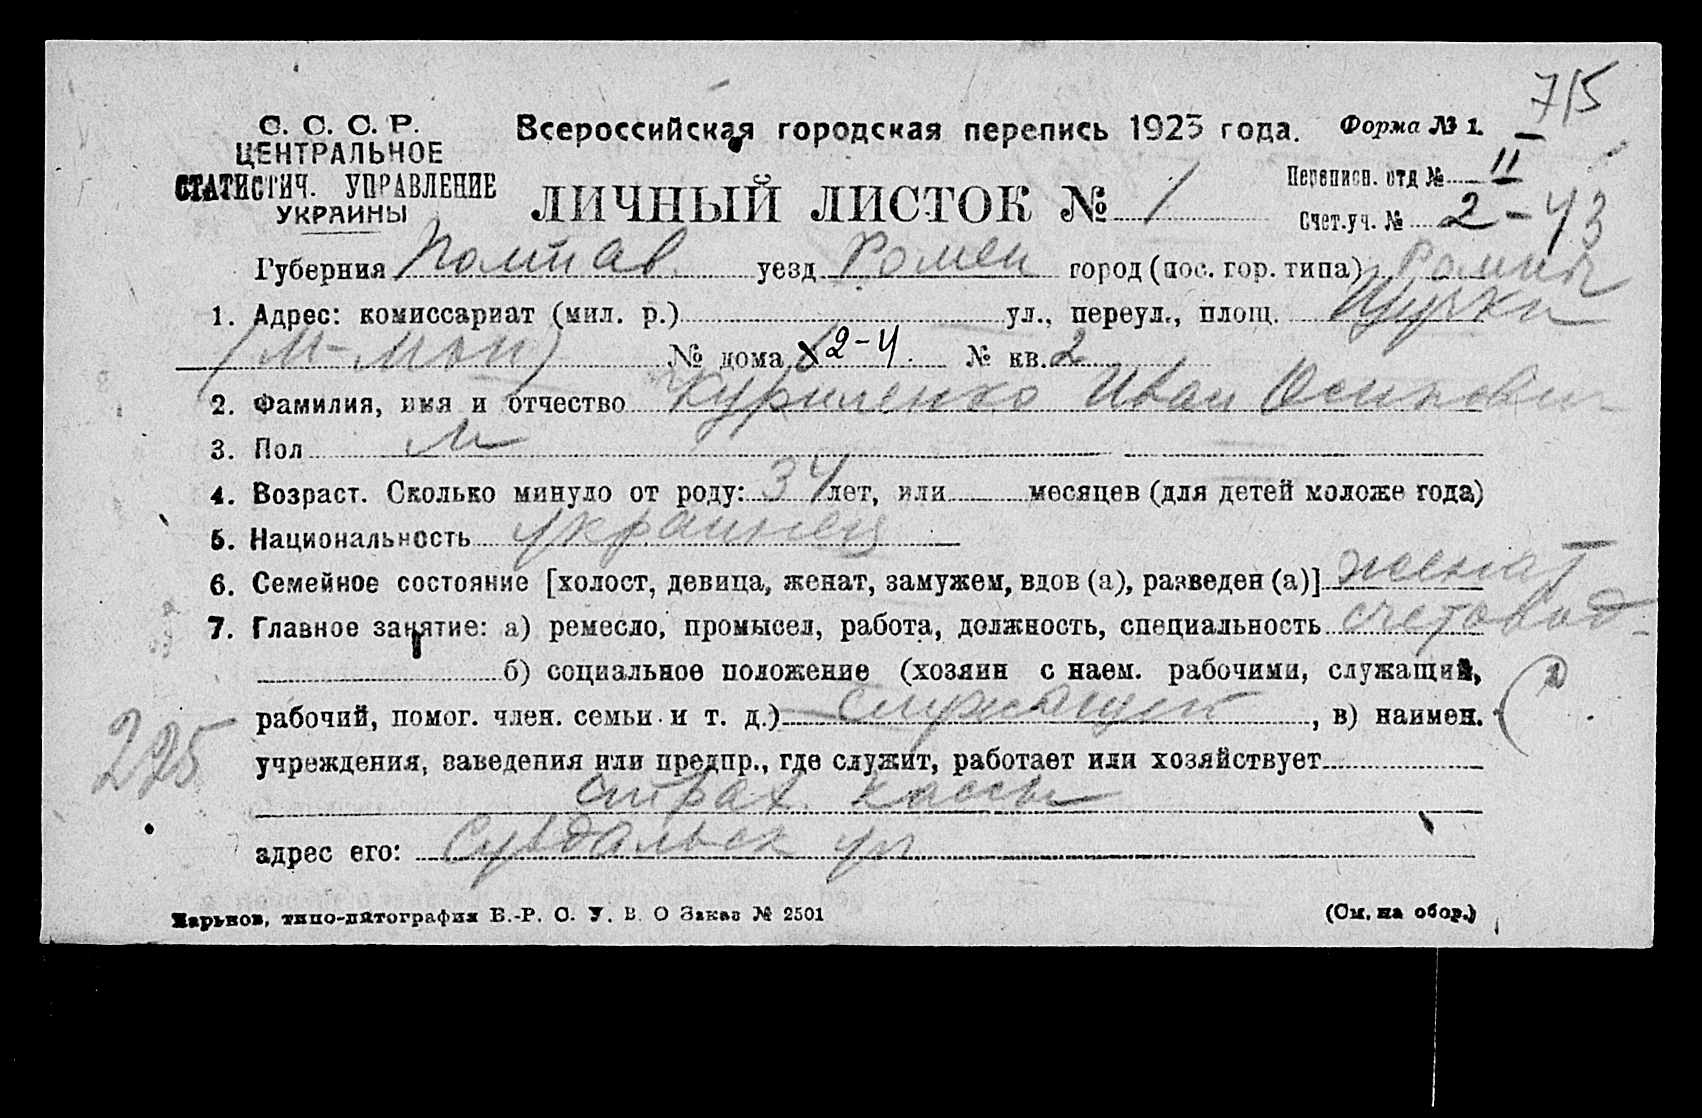 7/5
С. С. С. Р.
ЦЕНТРАЛЬНОЕ
СТАТИСТИЧ. УПРАВЛЕНИЕ
УКРАИНЫ
Всероссийская городская перепись 1923 года. Форма № 1.
ЛИЧНЫЙ ЛИСТОК № 1
Переписн. отд № II
Счет.уч. № 2-43
Губерния Полтав. уезд Ромен город (пос. гор. типа) Ромны
1. Адрес: комиссариат (мил. р.) ул., переул., площ.
№ дома 2-4. № кв. 2
2. Фамилия, имя и отчество Куриленко Иван Осипович
3. Пол М
4. Возраст. Сколько минуло от роду: 34 лет, или месяцев (для детей моложе года)
5. Национальность украинец
6. Семейное состояние [холост, девица, женат, замужем, вдов (а), разведен (а)] женат
7. Главное занятие: а) ремесло, промысел, работа, должность, специальность счетовод
б) социальное положение (хозяин с наем. рабочими, служащий,
рабочий, помог. член. семьи и т. д.) служащий, в) наимен.
225
учреждения, заведения или предпр., где служит, работает или хозяйствует
страх. кассы
адрес его: Суздальск ул
Харьков, типо-литография Е.-Р. О. У. В. О Заказ № 2501
(См. на обор.)